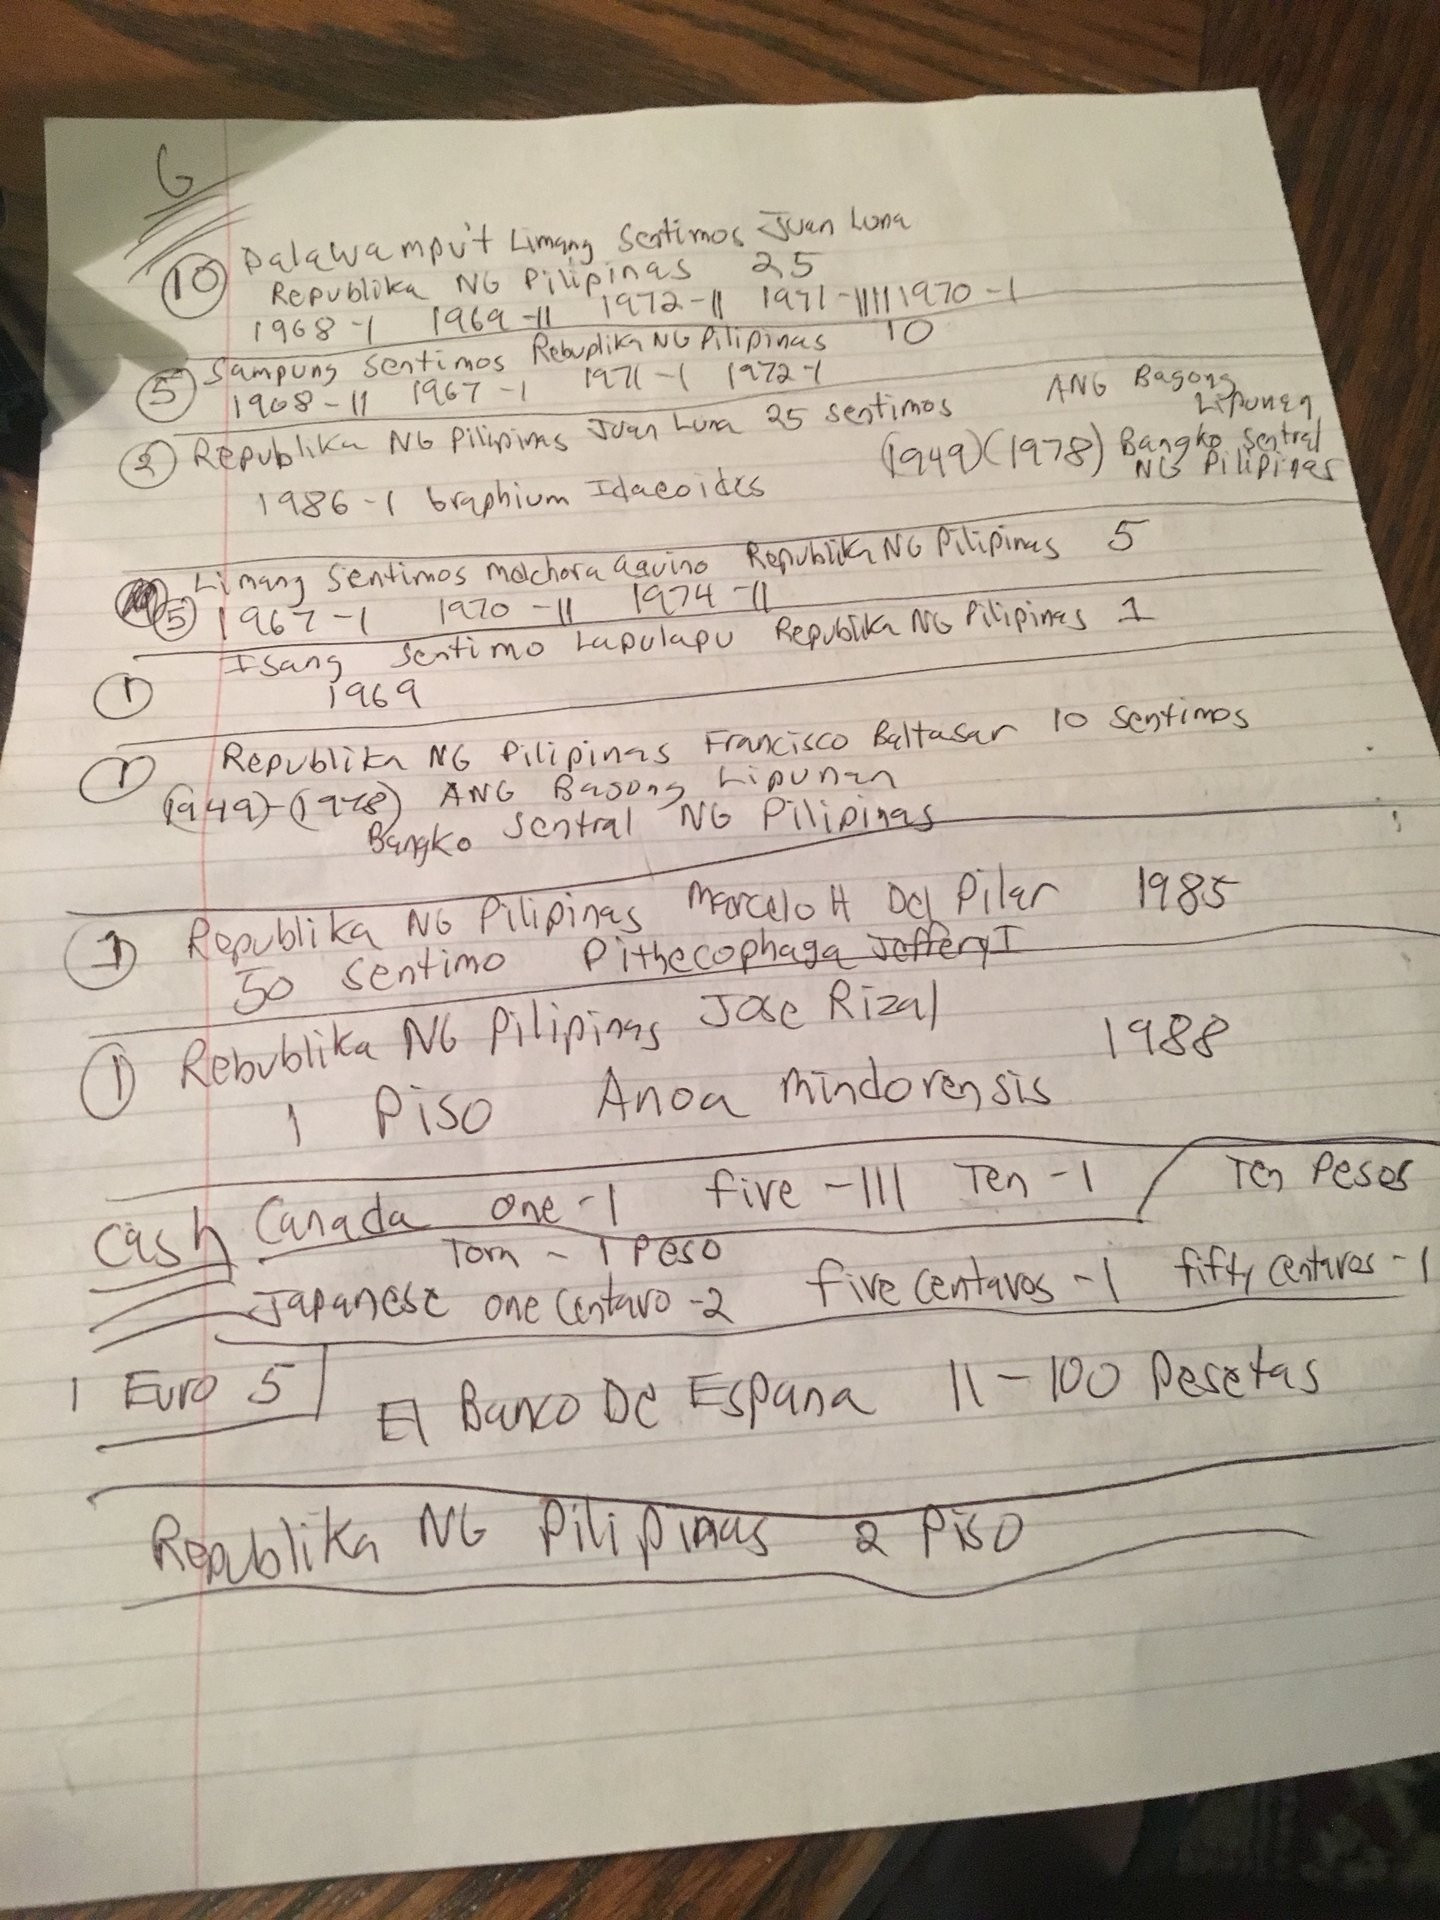 6
10 Dalawamput Limang Sentimos Juan Luna
Republika NG Pilipinas 25
1968-1 1969-11 1972-11 1971-1111 1970-1
5 Sampung Sentimos Rebuplika NG Pilipinas 10
1968-11 1967-1 1971-1 1972-1
2 Republika NG Pilipinas Juan Luna 25 sentimos ANG Bagong Lipunan
(1949)(1978) Bangko Sentral NG Pilipinas
1986-1 Graphium Idaeoides
5 Limang Sentimos Melchora aquino Republika NG Pilipinas 5
1967-1 1970-11 1974-11
1 Isang Sentimo Lapulapu Republika NG Pilipinas 1
1969
1 Republika NG Pilipinas Francisco Baltasar 10 Sentimos
(1949)-(1978) ANG Bagong Lipunan
Bangko Sentral NG Pilipinas
1 Republika NG Pilipinas Marcelo H Del Pilar 1985
50 Sentimo Pithecophaga JefferyI
1 Rebublika NG Pilipinas Jose Rizal 1988
1 Piso Anoa mindorensis
Cash Canada one-1 five-111 Ten-1 Ten Pesos
Torn - 1 Peso
Japanese one Centavo-2 five centavos-1 fifty centavos-1
1 Euro 5 El Banco De Espana 11-100 Pesetas
Republika NG Pilipinas 2 Piso